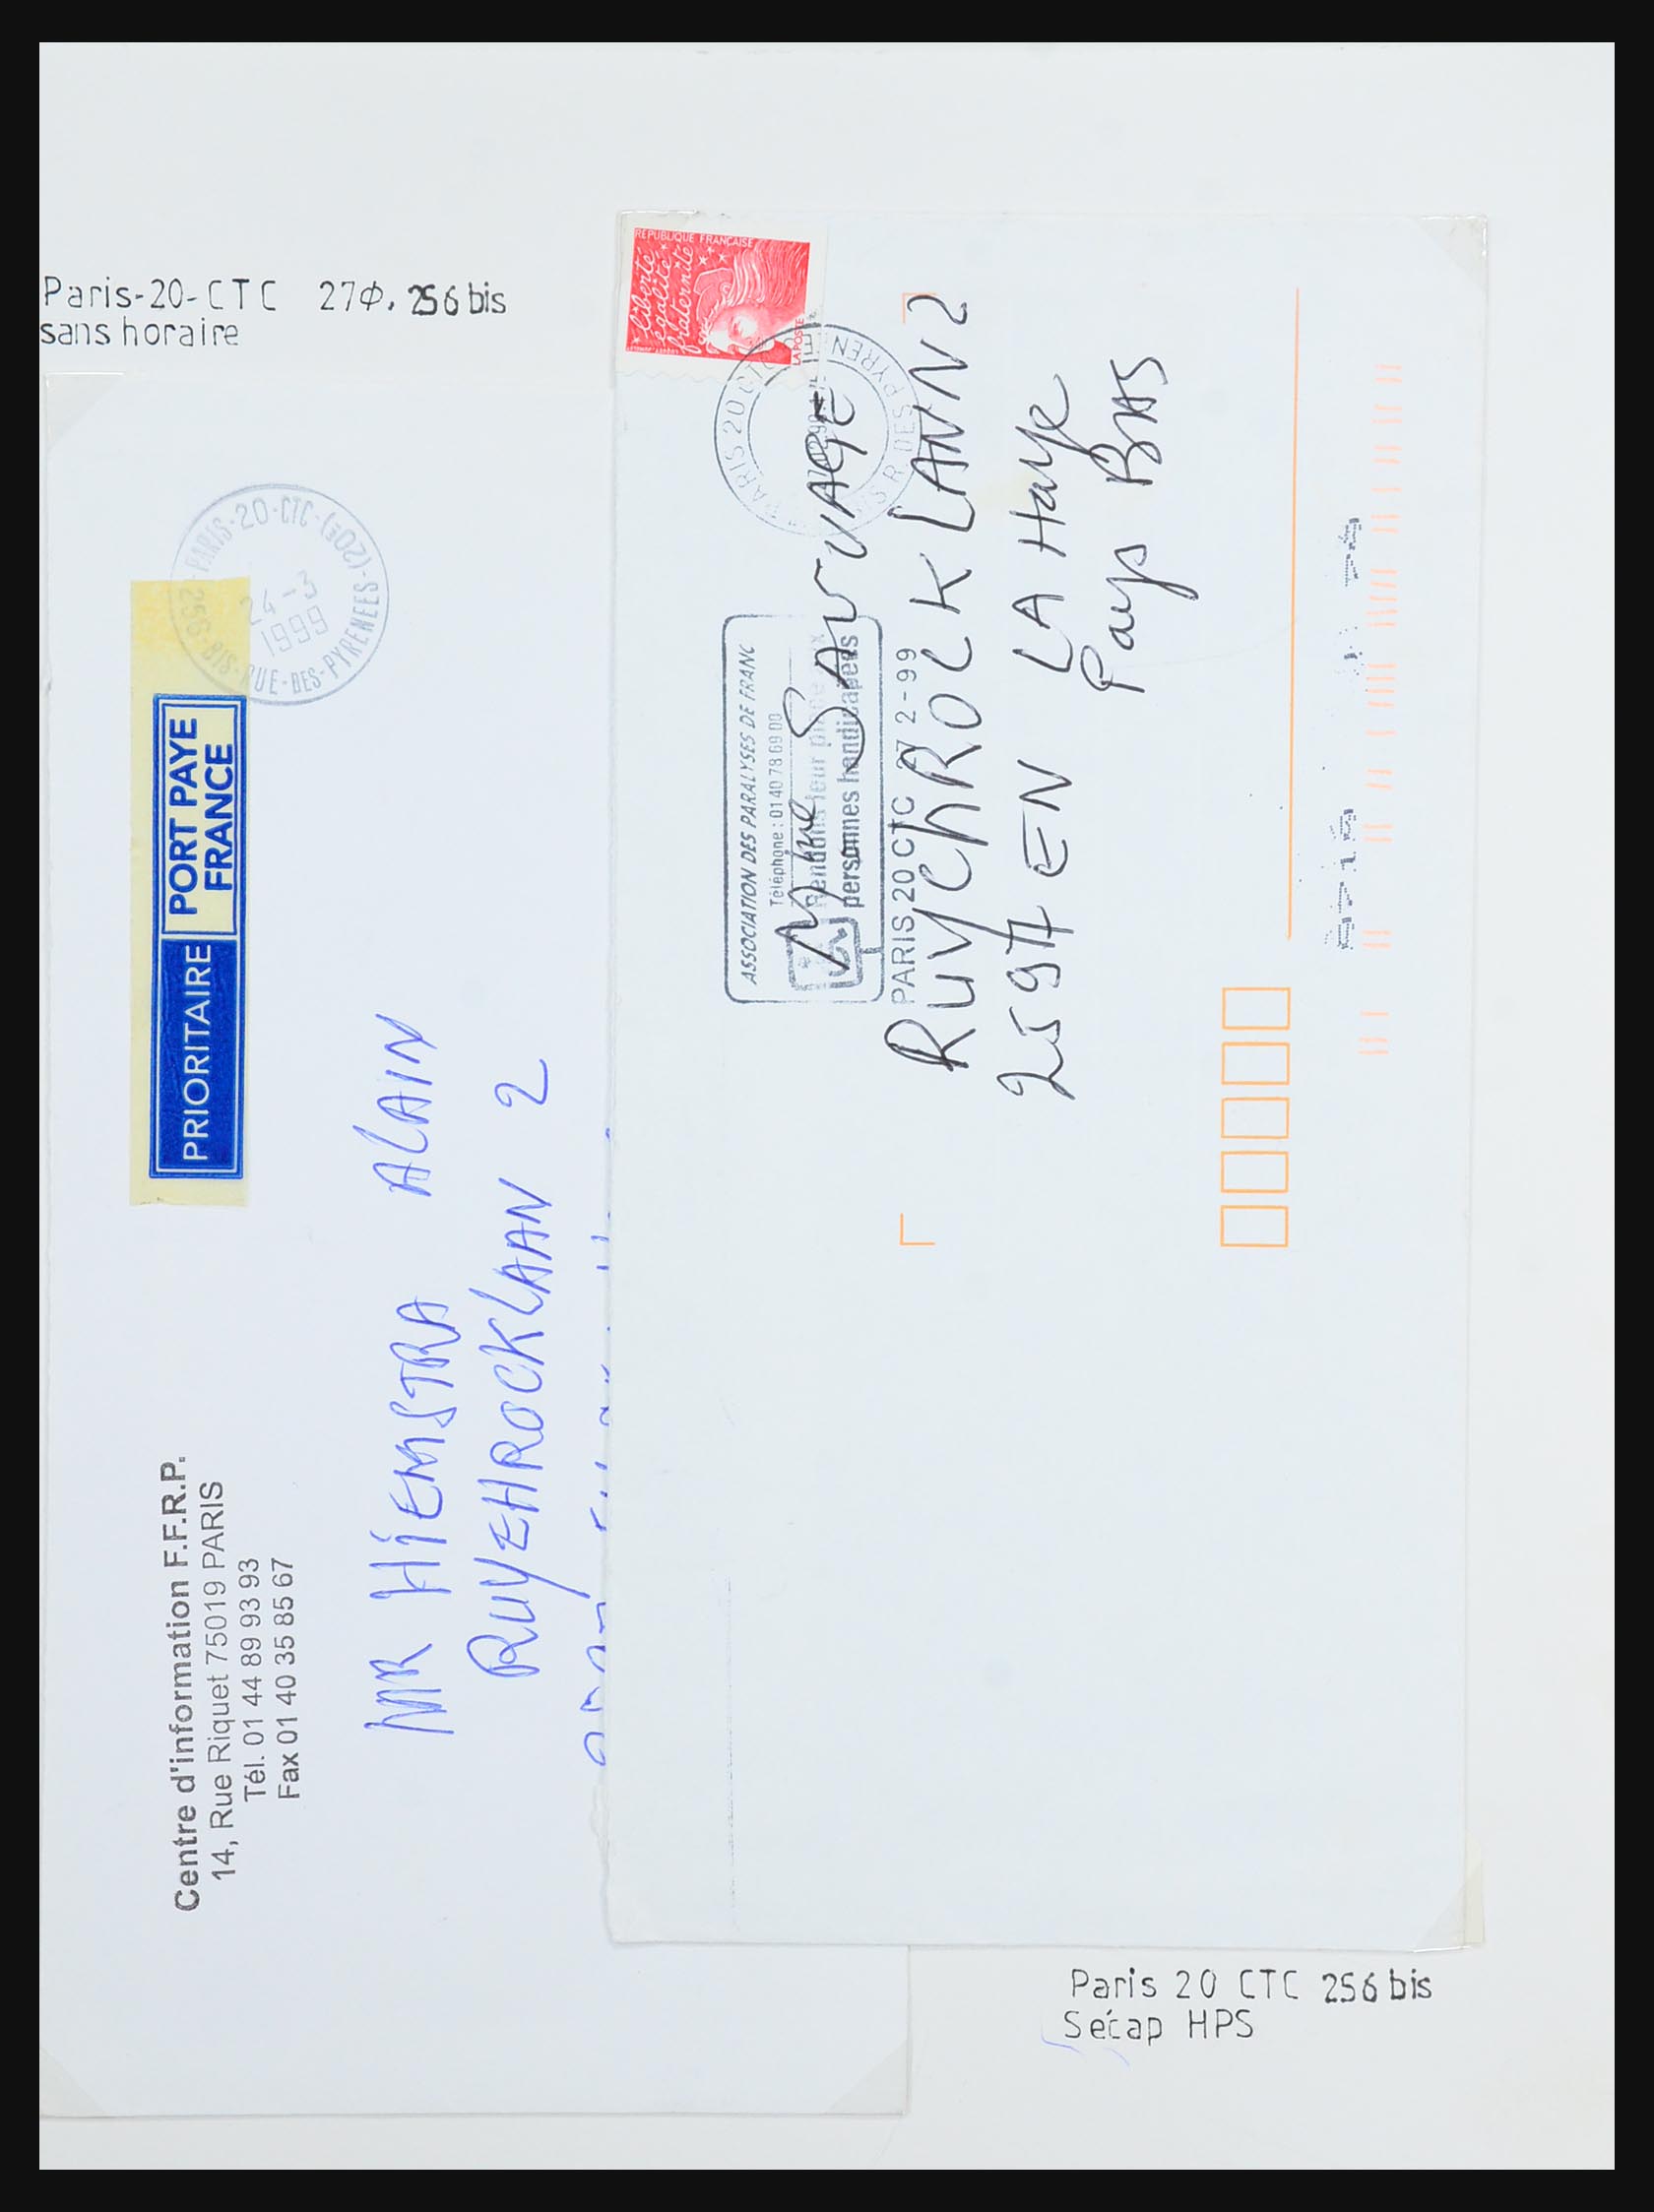 Paris-20-CTC 27Φ, 256 bis
sans horaire
Centre d'information F.F.R.P.
14, Rue Riquet 75019 PARIS
Tél. 01 44 89 93 93
Fax 01 40 35 85 67
PRIORITAIRE
PORT PAYE
FRANCE
PARIS-20-CTC-(20E)
24-3
1999
256-BIS-RUE-DES-PYRENEES
MR HIEMSTRA ALAIN
RUYZHROCKLAAN 2
REPUBLIQUE FRANÇAISE
liberté
égalité
fraternité
LA POSTE
PARIS 20 CTC
R DES PYREN
ASSOCIATION DES PARALYSES DE FRANC
Téléphone : 01 40 78 69 00
Rendons leur
personnes handicapées
PARIS 20 CTC 2-99
SAUVAGE
RUYCHROCK LAAN 2
2597 EN LA Haye
Pays BAS
Paris 20 CTC 256 bis
Sécap HPS